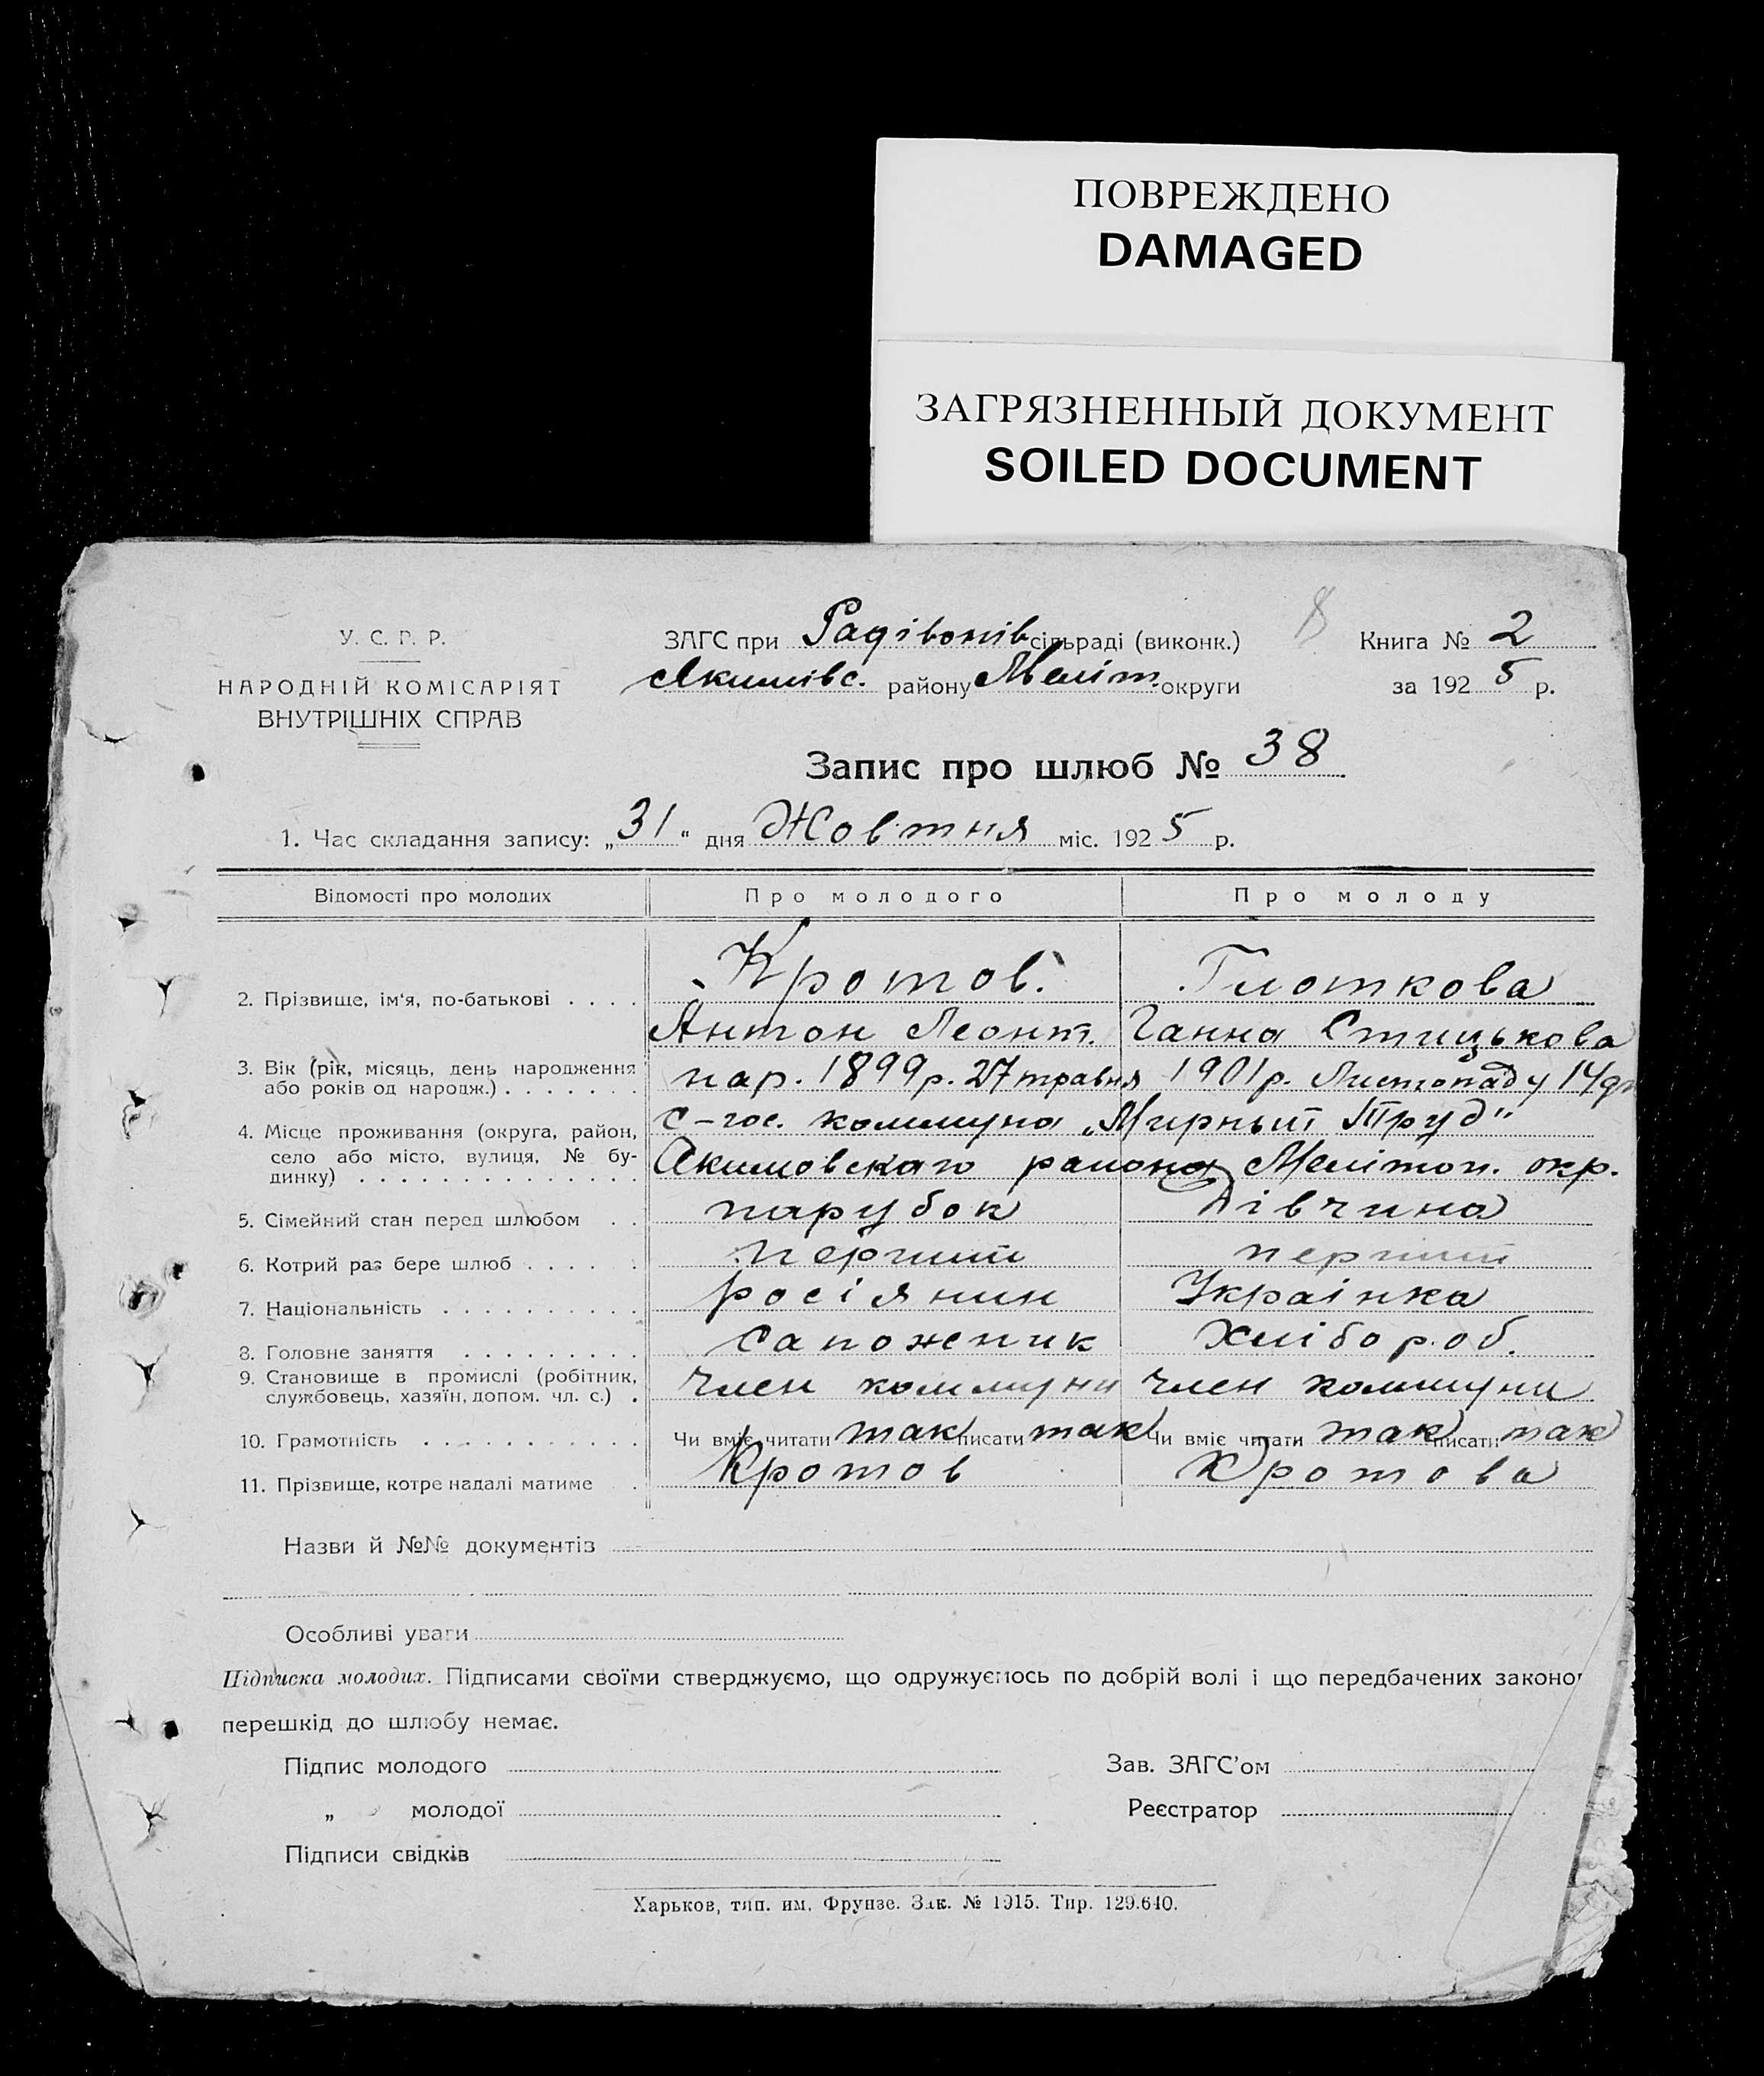 ПОВРЕЖДЕНО
DAMAGED
ЗАГРЯЗНЕННЫЙ ДОКУМЕНТ
SOILED DOCUMENT
У. С. Р. Р.
НАРОДНІЙ КОМІСАРІЯТ
ВНУТРІШНІХ СПРАВ
ЗАГС при Радівонів сільраді (виконк.)
Якимівс. району Меліт. округи
Книга № 2
за 1925 р.
Запис про шлюб № 38
1. Час складання запису: „31" дня Жовтня міс. 1925 р.
Відомості про молодих Про молодого Про молоду
2. Прізвище, ім'я, по-батькові . . . . Кротов Глоткова
Антон Леонт. Ганна
3. Вік (рік, місяць, день народження нар. 1899 р. 27 травня 1901 р. Листопаду 14 дн
або років од народж.) . . . . . . .
4. Місце проживання (округа, район, с-гос. коммуна „Мирный Труд"
село або місто, вулиця, № бу- Акимовскаго района Мелітоп. окр.
динку) . . . . . . . . . . . . . .
5. Сімейний стан перед шлюбом . . парубок Дівчина
6. Котрий раз бере шлюб . . . . . перший перший
7. Національність . . . . . . . . . . росіянин Українка
8. Головне заняття . . . . . . . . . сапожник Хлібороб.
9. Становище в промислі (робітник, Член коммуни Член коммуни
службовець, хазяїн, допом. чл. с.) .
10. Грамотність . . . . . . . . . . . Чи вміє читати так писати так Чи вміє читати так писати так
11. Прізвище, котре надалі матиме . Кротов Кротова
Назви й №№ документів
Особливі уваги
Підписка молодих. Підписами своїми стверджуємо, що одружуємось по добрій волі і що передбачених законо
перешкід до шлюбу немає.
Підпис молодого
Зав. ЗАГС'ом
„ молодої
Реєстратор
Підписи свідків
Харьков, тип. им. Фрунзе. Зак. № 1915. Тир. 129.640.